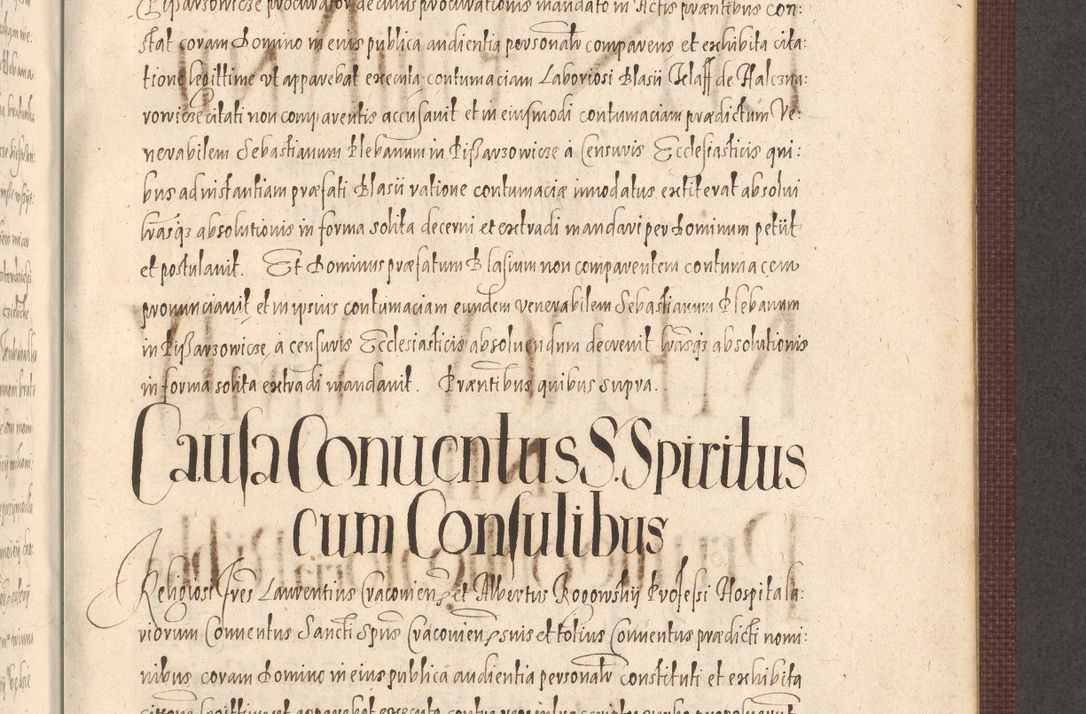 Pißarzowicze procurator de cuius procurationis mandato in Actis præntibus con:
stat coram Domino in eius publica audientia personalr comparens et exhibita cita:
tione legittime ut apparebat executa contumaciam Laboriosi Blasii Klaff de Halczna:
rowicze citati non comparentis accusavit et in eiusmodi contumaciam prædictum Ve:
nerabilem Sebastianum Plebanum in Pißarzowicze à Censuris Ecclesiasticis qui:
bus ad instantiam præfati Blasii ratione contumaciæ innodatus extiterat absolvi
lrasq3 absolutionis in forma solita decerni et extradi mandari per Dominum petiit
et postulavit. Et Dominus præfatum Blasium non comparentem contumacem
pronunciavit et in ipsius contumaciam eundem venerabilem Sebastianum Plebanum
in Pißarzowicze, a censuris Ecclesiasticis absoluendum decrevit lrasq3 absolutionis
in forma solita extradi mandavit. Præntibus quibus supra.
Causa Conuentus S. Spiritus
cum Consulibus
Religiosi Fres Laurentius Cracovien et Albertus Rogowskij Professi Hospitala:
riorum Conventus Sancti Spus Cracovien suis et totius Conventus prædicti nomi:
nibus coram Domino in eius publica audientia personalr constituti et exhibita